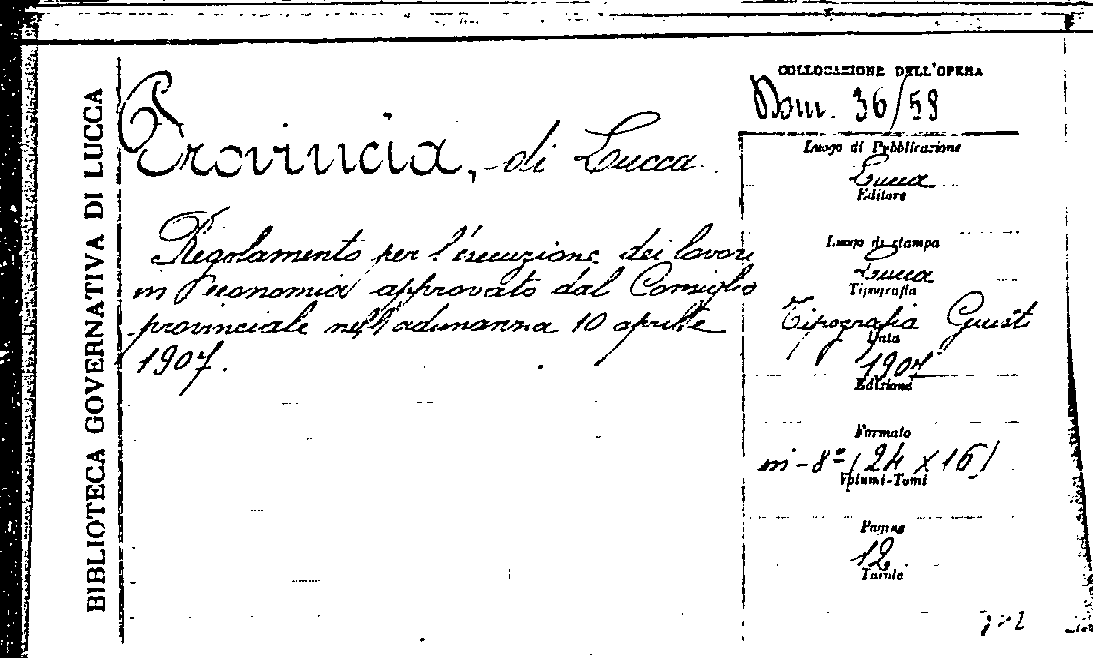 BIBLIOTECA GOVERNATIVA DI LUCCA
Provincia, di Lucca
Regolamento per l'esecuzione dei lavori
in economia approvato dal Consiglio
provinciale nell'adunanza 10 aprile
1907.
COLLOCAZIONE DELL'OPERA
Bom. 36/59
Luogo di Pubblicazione
Lucca
Editore
Luogo di stampa
Lucca
Tipografia
Tipografia Giusti
Data
1907
Edizione
Formato
in-8º (24 x 16)
Volumi-Tomi
Pagine
12
Tavole